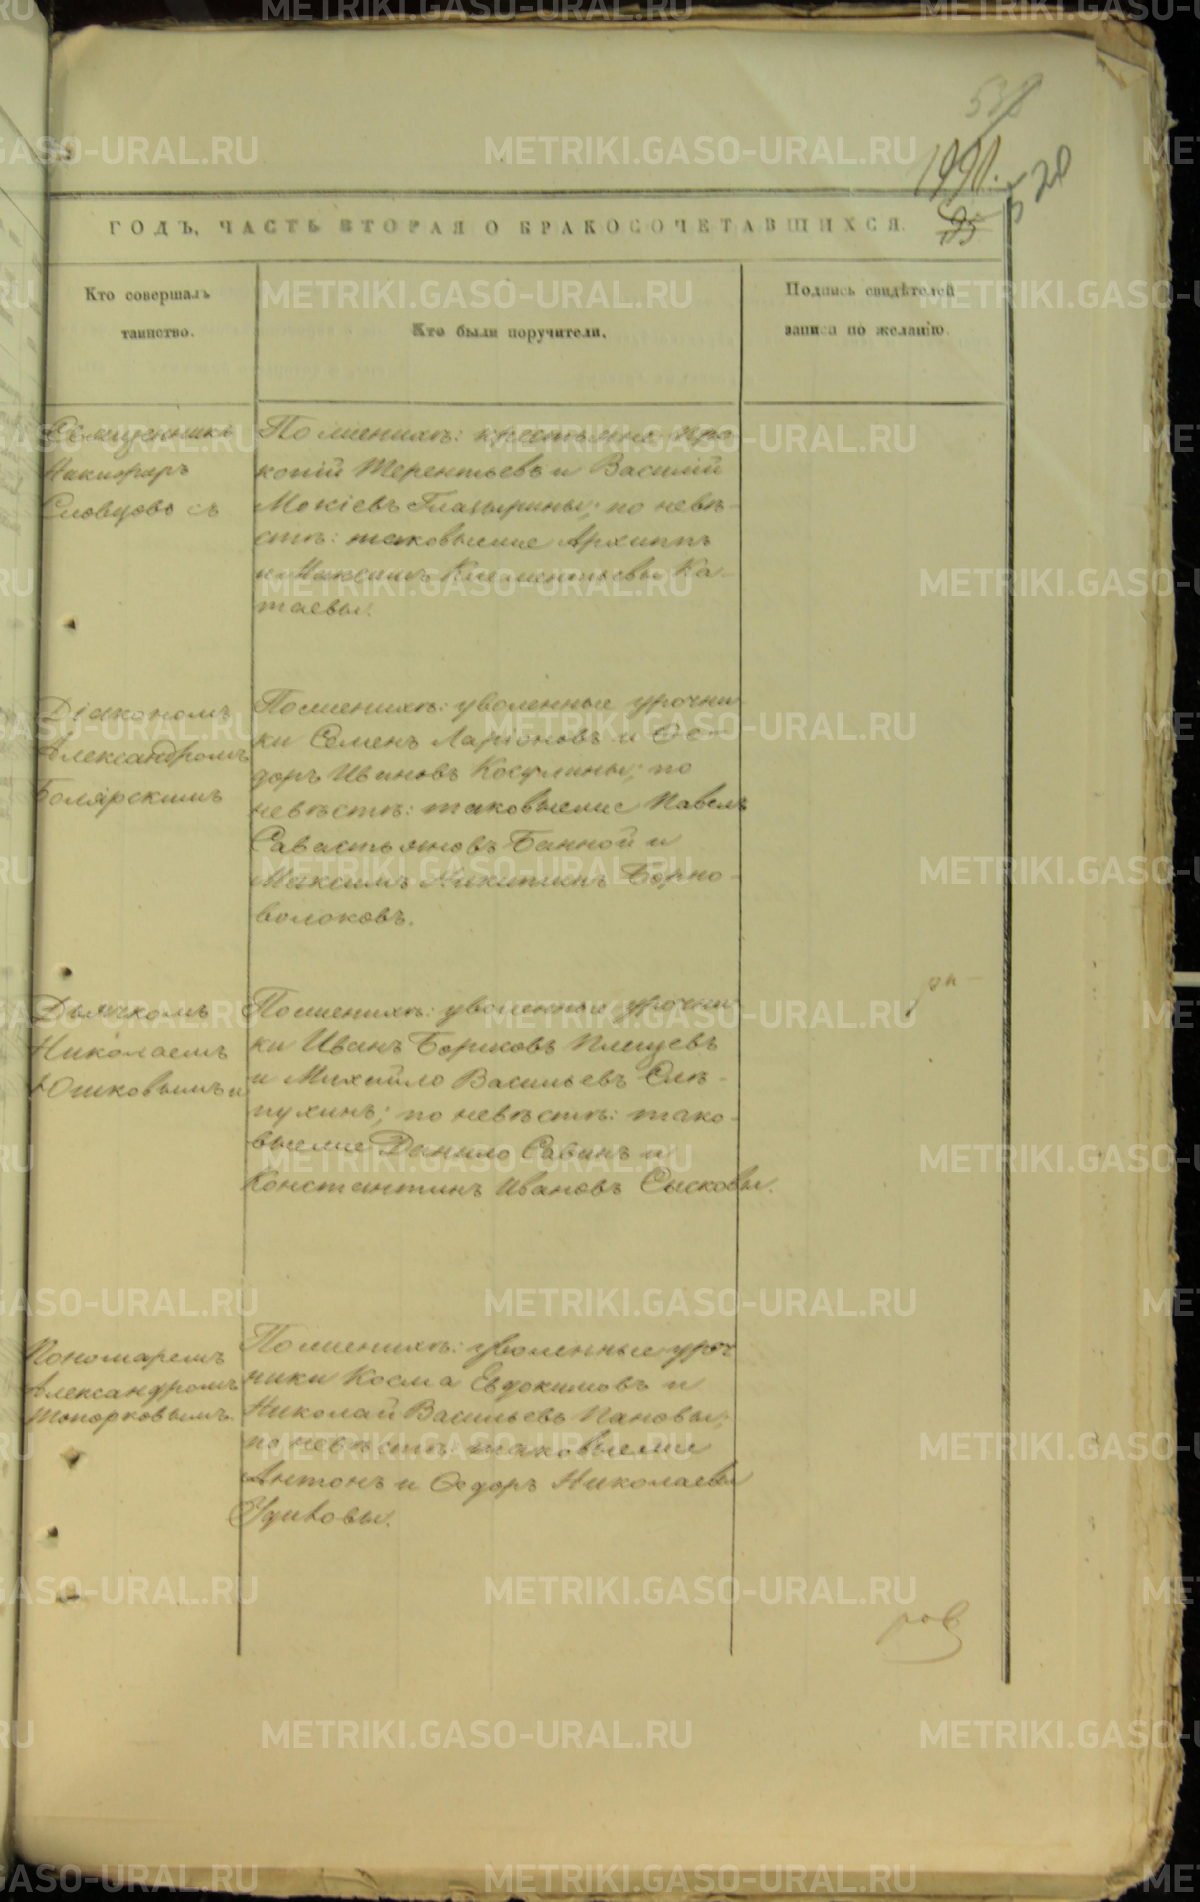 1991.
520
ГОДЪ, ЧАСТЬ ВТОРАЯ О БРАКОСОЧЕТАВШИХСЯ.
Кто совершалъ
таинство.
Кто были поручители.
Подпись свидѣтелей
записи по желанію.
Священникъ
Никифоръ
Словцовъ съ
По женихѣ: крестьяне Про
копій Терентьевъ и Василій
Мокіевъ Глазырины; по невѣ-
стѣ: таковыеже Архиппъ
и Максимъ Климентьевы Ка-
таевы.
Діакономъ
Александромъ
Боляркимъ
По женихѣ: уволенные урочни
ки Семенъ Ларіоновъ и Ѳе-
доръ Ивановъ Косулины; по
невѣстѣ: таковыеже Павелъ
Савастьяновъ Банной и
Максимъ Никитинъ Борно-
волоковъ.
Дьячкомъ
Николаемъ
Юшковымъ и
По женихѣ: уволенные урочни
ки Иванъ Борисовъ Плещевъ
и Михайло Васильевъ Олѣ-
пухинъ; по невѣстѣ: тако-
выеже Данило Савинъ и
Константинъ Ивановъ Сысковы.
Пономаремъ
Александромъ
Топорковымъ.
По женихѣ: уволенные уроч
ники Косма Евдокимовъ и
Николай Васильевъ Пановы;
по невѣстѣ: таковыеже
Антонъ и Ѳедоръ Николаевы
Удиловы.
ров
METRIKI.GASO-URAL.RU